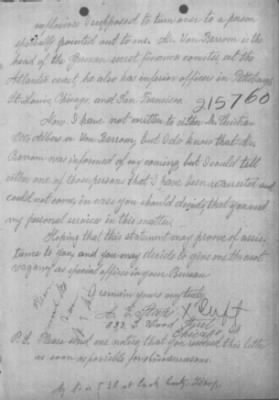 influence I supposed to turn over to a person
specially pointed out to me. Mr. Von Barrom is the
head of the German secret finance comitee, at the
Atlantic coast, he also has inferior offices in Pittsburgh
St. Louis, Chicago, and San Francisco
215760
Now I have not written to either Mr. Christian
or Von Barrom, but I do know that Mr.
Barrom was informed of my coming, but I could tell
either one of these persons that I have been
and
could not come, in case you should decide that you need
my personal service in this matter.
Hoping that this statement may prove of assis-
tance to you, and you may decide to give me the next
vagancy as special officer in your Bureau
I remain yours very truly
Wood Street
Chicago Ill
P.S. Please send me notice that you received this letter
as soon as possible for obvious reasons.
My